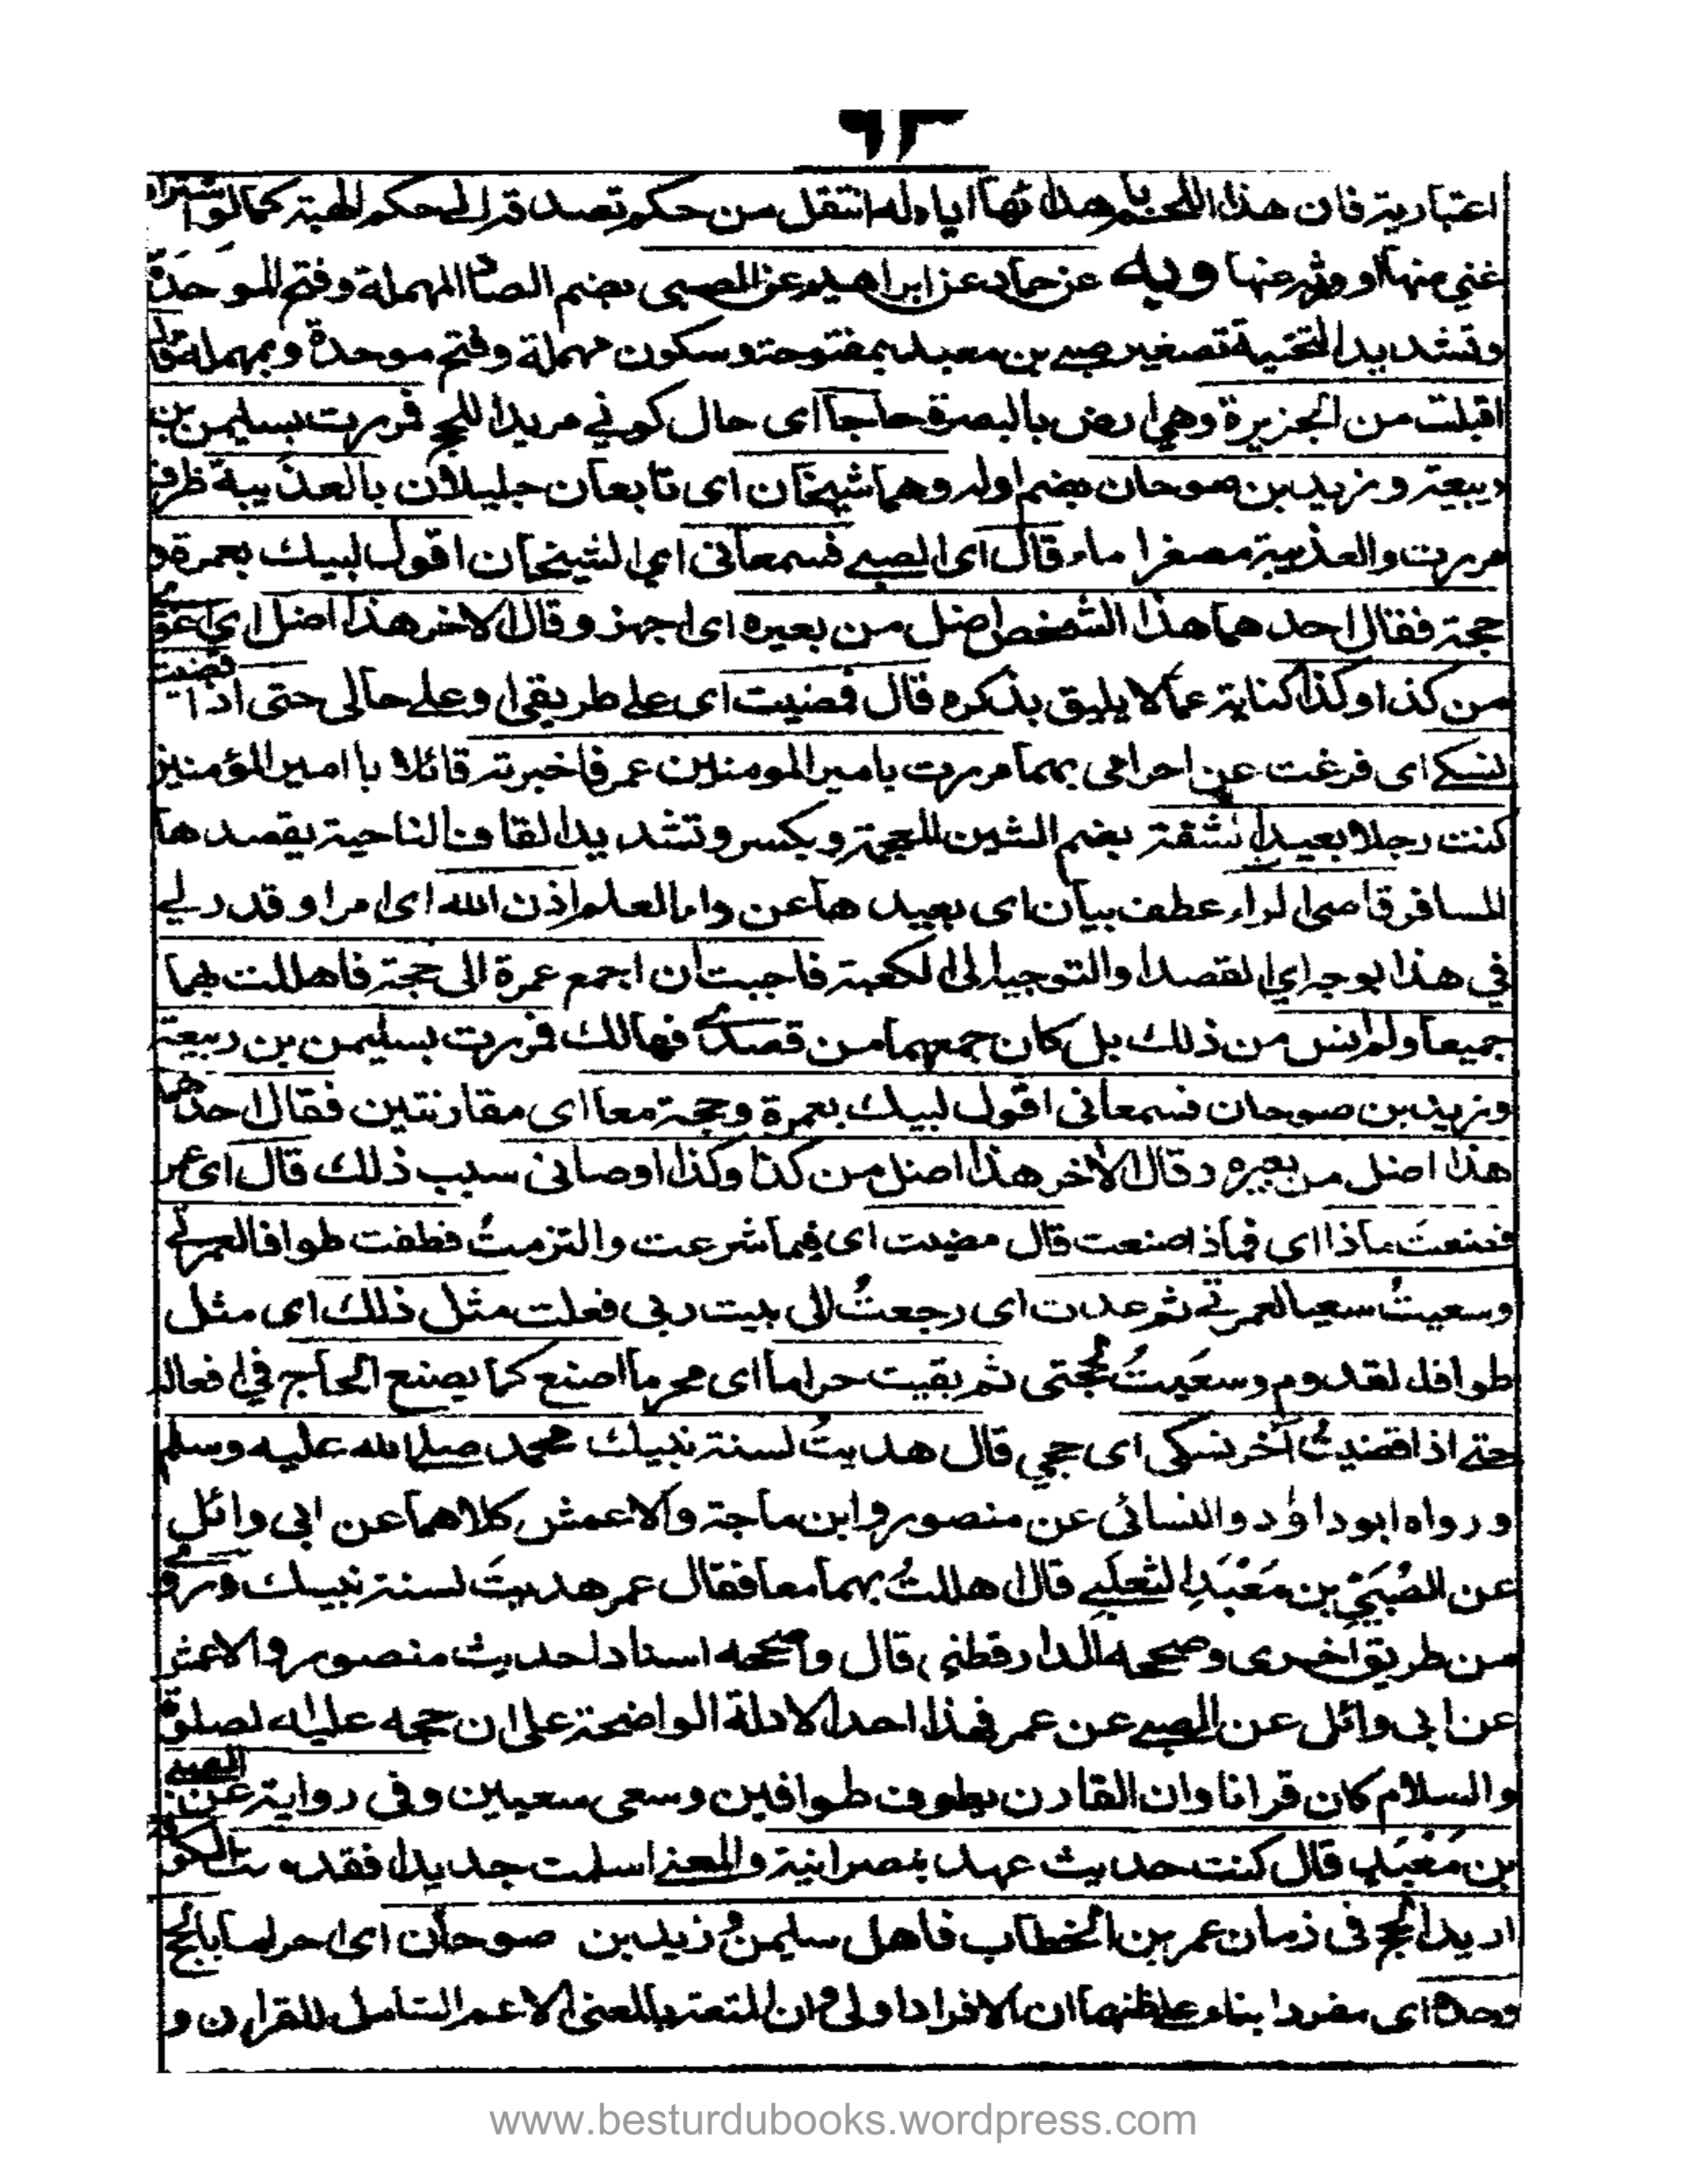 ٦٣
اعتبارية فان هذا اللحم باهدائها اياه له انتقل من حكم تصدق الى حكم الهبة كما لو اشتراه
غني منها او ورثه عنها وبه عن حماد عن ابراهيم عن الصبي بضم الصاد المهملة وفتح الموحدة
وتشديد التحتية تصغير صبي بن معبد بمفتوحة وسكون مهملة وفتح موحدة وبمهملة قال
اقبلت من الجزيرة وهي ارض بالبصرة حاجا اى حال كوني مريدا للحج فمررت بسليمن بن
ربيعة وزيد بن صوحان بضم اوله وهما شيخان اى تابعان جليلان بالعذيبة ظرف
مررت والعذيبة مصغرا ماء قال اى الصبي فسمعانى اي الشيخان اقول لبيك بعمرة و
حجة فقال احدهما هذا الشخص اضل من بعيره اى اجهز وقال الاخر هذا اضل اي
من كذا وكذا كناية عما لا يليق بذكره قال فمضيت اى على طريقي او على حالى حتى اذا قضيت
نسكى اى فرغت عن احرامى بهما مررت بامير المومنين عمر فاخبرته قائلا يا امير المؤمنين
كنت رجلا بعيد الشقة بضم الشين المعجمة ويكسر وتشديد القاف الناحية يقصدها
المسافر قاصى الدار عطف بيان اى بعيدها عن دار العلم اذن الله اى امر او قدر لي
في هذا لوجه اي القصد او التوجه الى الكعبة فاحببت ان اجمع عمرة الى حجة فاهللت بهما
جميعا ولم انس من ذلك بل كان جمعهما من قصدي فهالك فمررت بسليمن بن ربيعة
وزيد بن صوحان فسمعانى اقول لبيك بعمرة وحجة معا اى مقارنتين فقال احدهما
هذا اضل من بعيره وقال الاخر هذا اضل من كذا وكذا اوصانى سبب ذلك قال اى عمر
فصنعت ماذا اى فماذا صنعت قال مضيت اى فيما شرعت والتزمت فطفت طوافا لعمرتي
وسعيت سعيا لعمرتي ثم عدت اى رجعت الى بيت ربى فعلت مثل ذلك اى مثل
طوافك لقدوم وسعيت لحجتى ثم بقيت حراما اى محرما اصنع كما يصنع الحاج في افعاله
حتى اذا قضيت آخر نسكى اى حجي قال هديت لسنة نبيك محمد صلى الله عليه وسلم
ورواه ابو داؤد والنسائى عن منصور وابن ماجة والاعمش كلاهما عن ابى وائل
عن الصبي بن معبد الثعلبي قال اهللت بهما معا فقال عمر هديت لسنة نبيك وروي
من طريق اخرى وصححه الدارقطني قال واصححه اسنادا حديث منصور والاعمش
عن ابى وائل عن الصبي عن عمر فهذا احد الادلة الواضحة على ان حجه عليه الصلوة
والسلام كان قرانا وان القارن يطوف طوافين وسعى سعيين وفى رواية عن الصبي
بن معبد قال كنت حديث عهد بنصرانية والمعنى اسلمت جديدا فقدمت الكوفة
اريد الحج فى زمان عمر بن الخطاب فاهل سليمن وزيد بن صوحان اى احراما بالحج
وحده اى مفردا بناء على ظنهما ان الافراد اولى وان المتعة بالمعنى الاعم الشامل للقران و
www.besturdubooks.wordpress.com